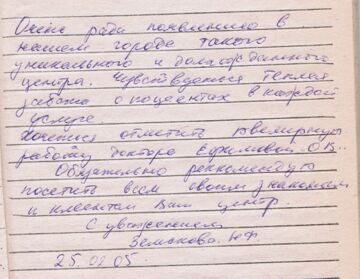 Очень рады появлению в
нашем городе такого
уникального и долгожданного
центра. Чувствуется теплая
забота о пациентах в каждой
услуге.
Хочется отметить ювелирную
работу доктора Ефимовой О.В..
Обязательно рекомендую
посетить всем своим знакомым
и клиентам Ваш центр.
С уважением
Земскова Н.Ф.
25.02.05.